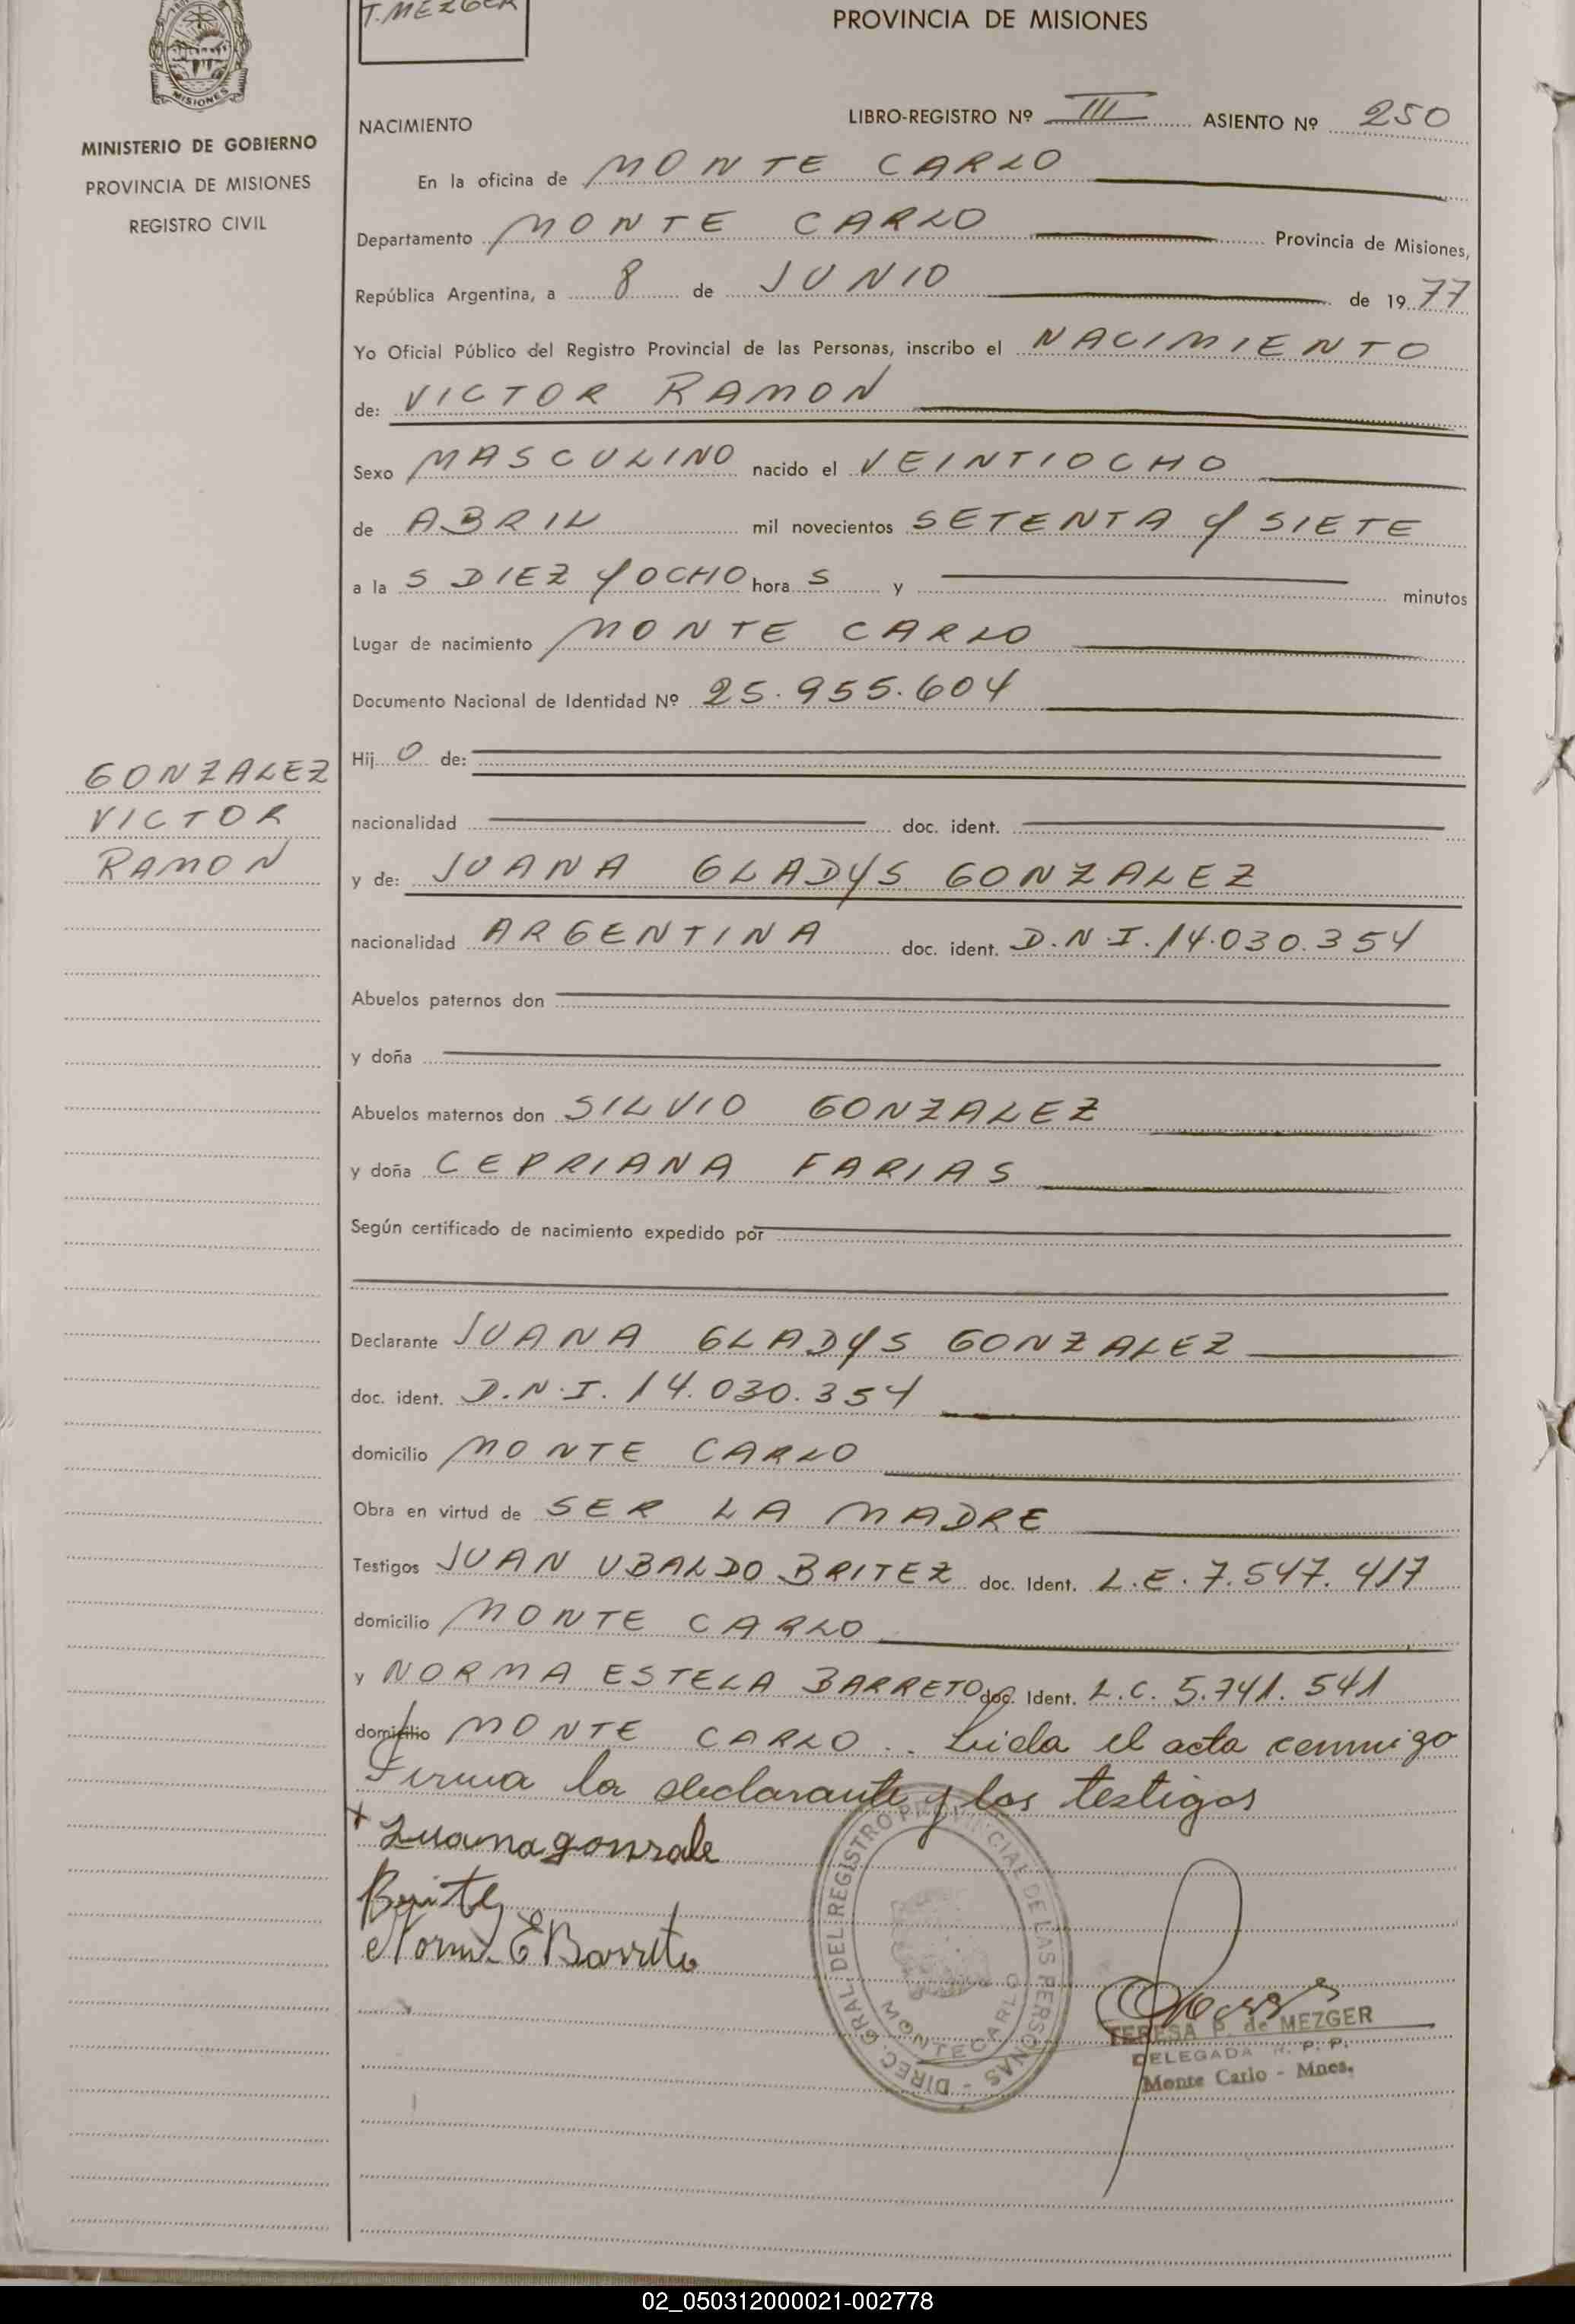 T. MEZGER
PROVINCIA DE MISIONES
MISIONES
MINISTERIO DE GOBIERNO
PROVINCIA DE MISIONES
REGISTRO CIVIL
NACIMIENTO
LIBRO-REGISTRO Nº III ASIENTO Nº 250
En la oficina de MONTE CARLO
Departamento MONTE CARLO Provincia de Misiones,
República Argentina, a 8 de JUNIO de 1977
Yo Oficial Público del Registro Provincial de las Personas, inscribo el NACIMIENTO
de: VICTOR RAMON
Sexo MASCULINO nacido el VEINTIOCHO
de ABRIL mil novecientos SETENTA Y SIETE
a la S DIEZ Y OCHO hora S y minutos
Lugar de nacimiento MONTE CARLO
Documento Nacional de Identidad Nº 25.955.604
Hij O de:
GONZALEZ
VICTOR
RAMON
nacionalidad doc. ident.
y de: JUANA GLADYS GONZALEZ
nacionalidad ARGENTINA doc. ident. D.N.I. 14.030.354
Abuelos paternos don
y doña
Abuelos maternos don SILVIO GONZALEZ
y doña CEPRIANA FARIAS
Según certificado de nacimiento expedido por
Declarante JUANA GLADYS GONZALEZ
doc. ident. D.N.I. 14.030.354
domicilio MONTE CARLO
Obra en virtud de SER LA MADRE
Testigos JUAN UBALDO BRITEZ doc. Ident. L.E. 7.547.417
domicilio MONTE CARLO
y NORMA ESTELA BARRETO doc. Ident. L.C. 5.741.541
domicilio MONTE CARLO.. Leida el acta conmigo
Firma la declarante y los testigos
+ Luana gonzale
Britez
Norma E Barreto
DIREC. GRAL. DEL REGISTRO PROVINCIAL DE LAS PERSONAS -
MONTECARLO
TERESA P. de MEZGER
DELEGADA R. P. P.
Monte Carlo - Mnes.
02_050312000021-002778